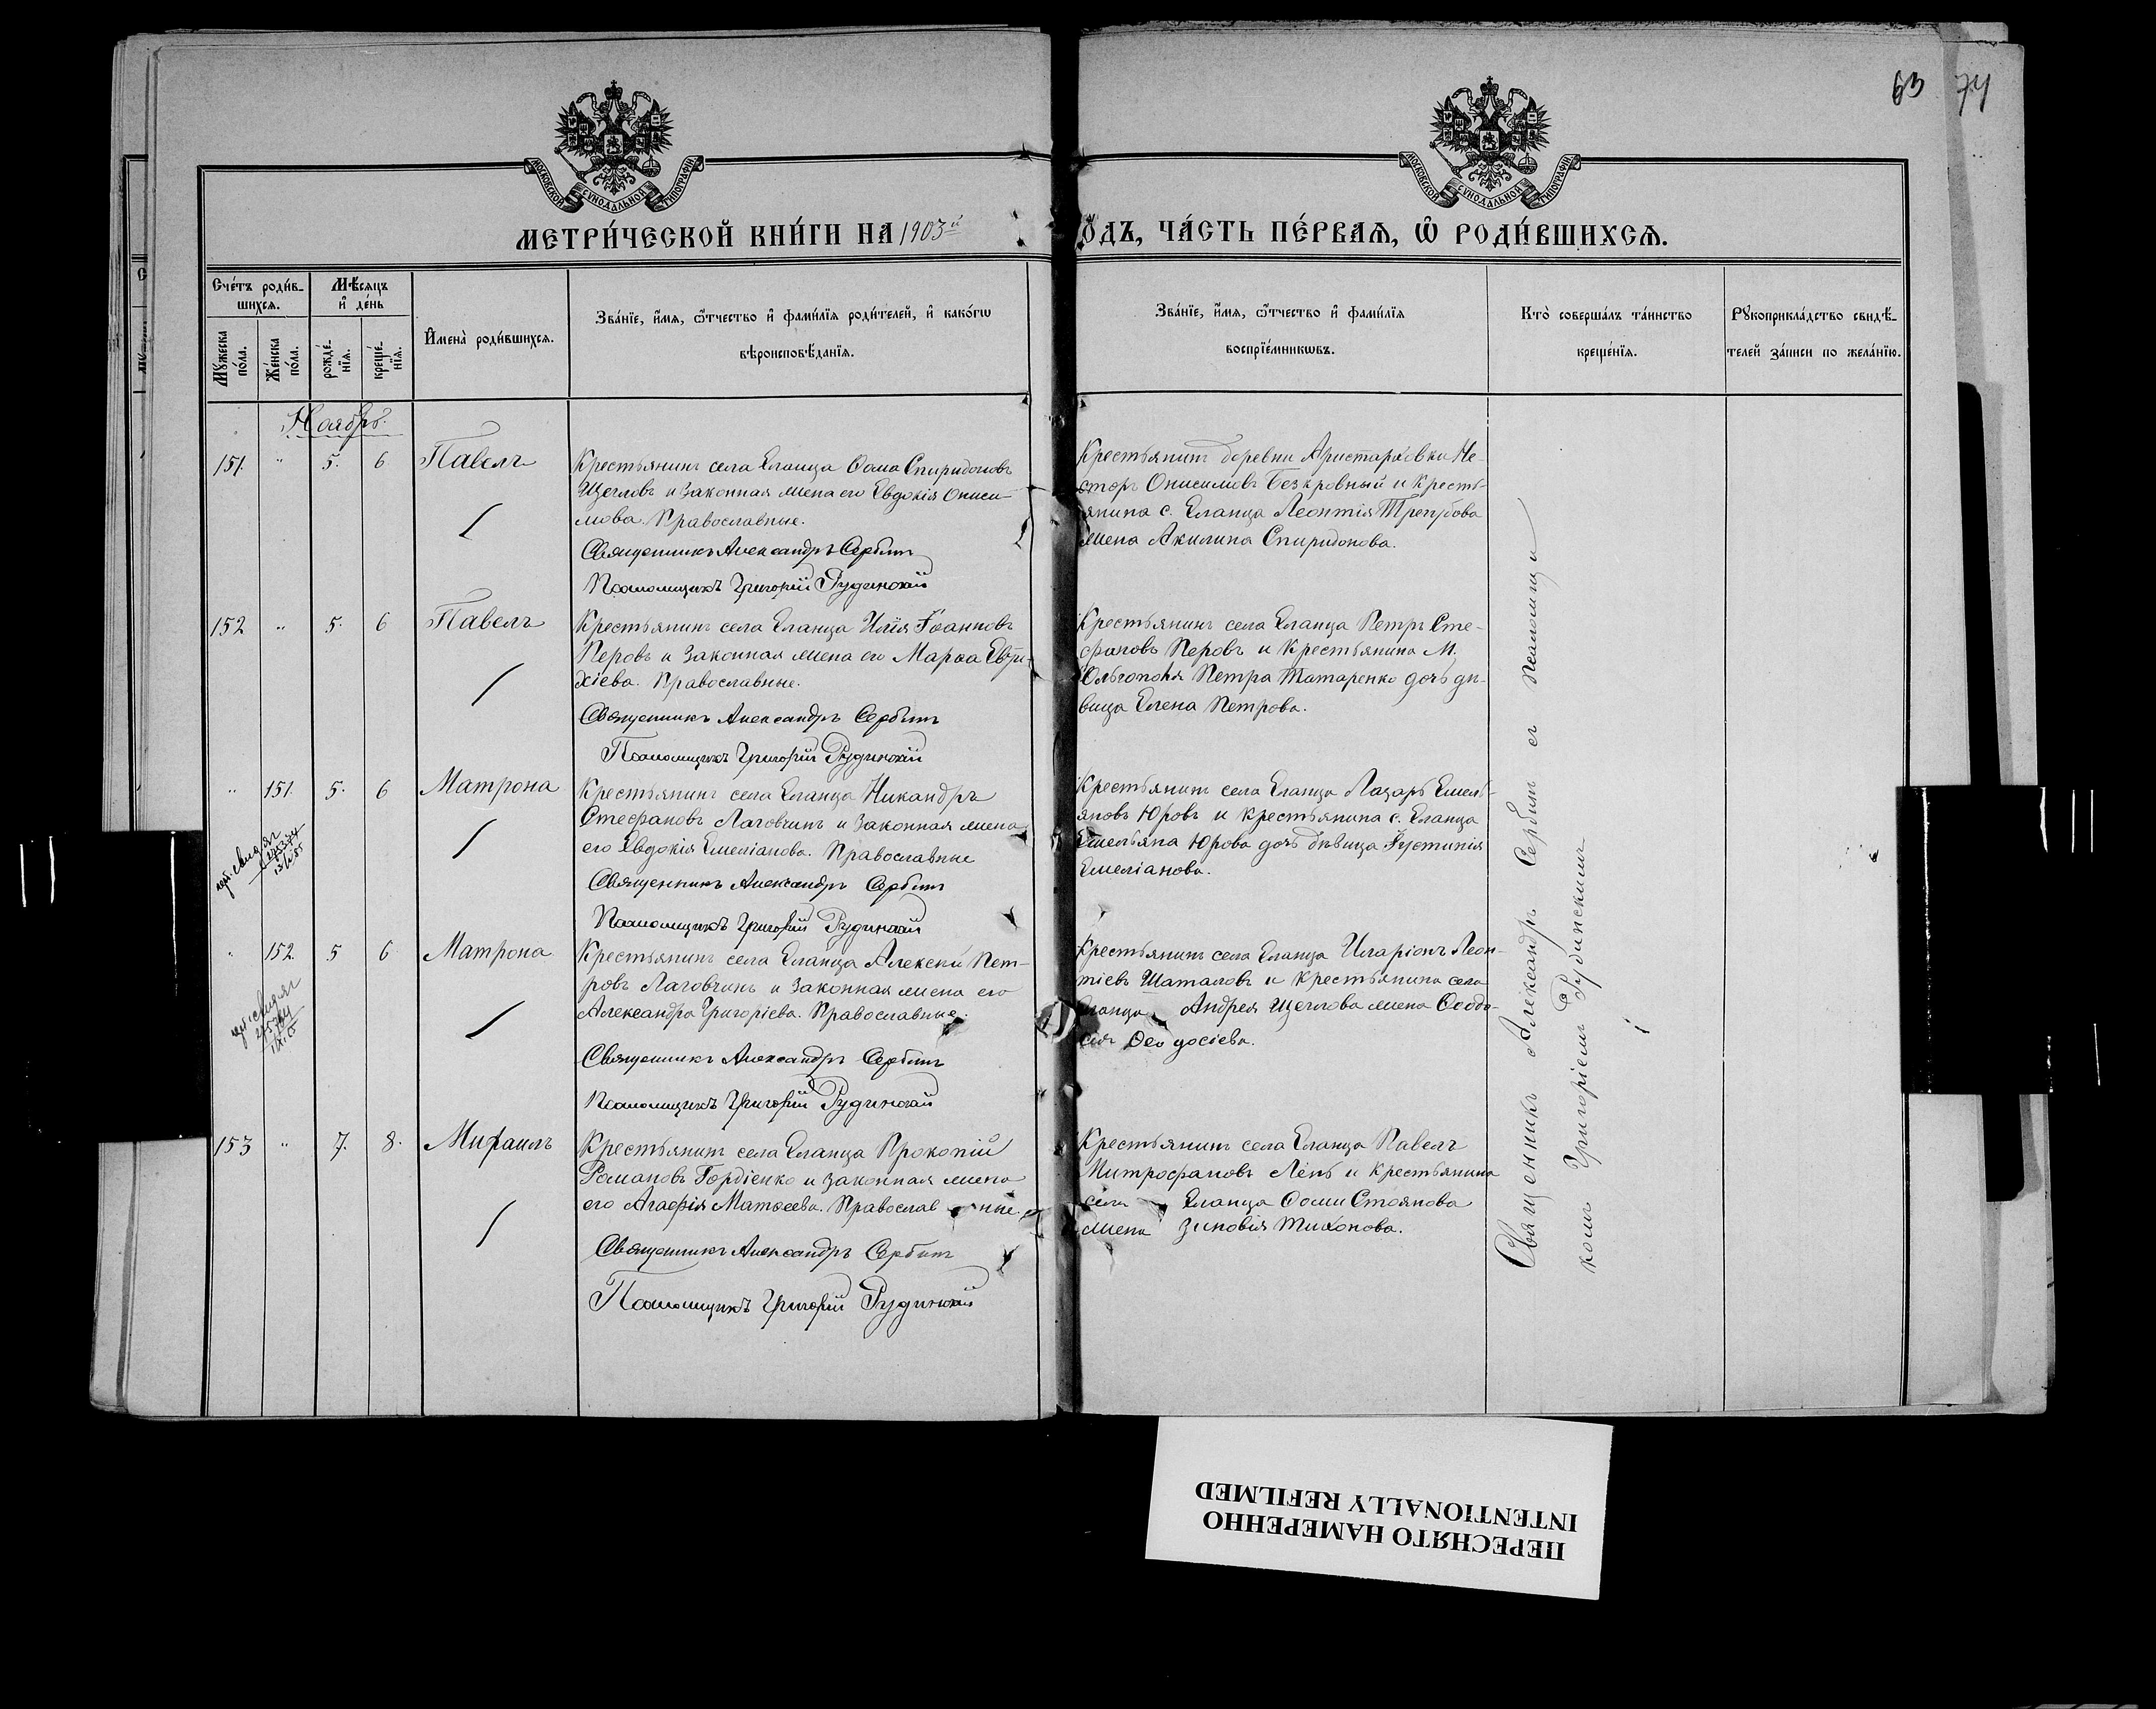 63 74
МОСКОВСКОЙ СУНОДАЛЬНОЙ ТИПОГРАФІИ
МОСКОВСКОЙ СУНОДАЛЬНОЙ ТИПОГРАФІИ
МЕТРИ́ЧЕСКОЙ КНИ́ГИ НА 1903й
ОДЪ, ЧА́СТЬ ПЕ́РВАѦ, Ѡ РОДИ́ВШИХСѦ.
Сче́тъ роди́в-
шихсѧ.
Мѣ́сѧцъ
и де́нь
Мꙋ́жеска
по́ла.
Же́нска
по́ла.
рожде́-
нїѧ.
креще́-
нїѧ.
Имена̀ роди́вшихсѧ.
Зва́нїе, и́мѧ, ѻ҆́тчество и фами́лїѧ роди́телей, и како́гѡ
вѣроисповѣ́данїѧ.
Зва́нїе, и́мѧ, ѻ҆́тчество и фами́лїѧ
воспрїе́мникѡвъ.
Кто̀ соверша́лъ та́инство
креще́нїѧ.
Рꙋкоприкла́дство свидѣ́-
телей за́писи по жела́нїю.
Ноябрь.
151. " 5. 6 Павелъ
Крестьянинъ села Еланца Ѳома Спиридоновъ
Щегловъ и законная жена его Евдокія Ониси-
мова. Православные.
Священникъ Александръ Сербинъ
Псаломщикъ Григорій Рудинскій
Крестьянинъ деревни Аристарховки Не-
сторъ Онисимовъ Безкровный и крестья-
янина с. Еланца Леонтія Трегубова
жена Акилина Спиридонова.
152 " 5. 6 Павелъ
Крестьянинъ села Еланца Илія Іоанновъ
Перовъ и законная жена его Марѳа Евти-
хіева. Православные.
Священникъ Александръ Сербинъ
Псаломщикъ Григорій Рудинскій
Крестьянинъ села Еланца Петръ Сте-
фановъ Перовъ и крестьянина М.
Ольгополя Петра Татаренко дочь дѣ-
вица Елена Петрова.
" 151. 5. 6 Матрона
Крестьянинъ села Еланца Никандръ
Стефановъ Лаговчинъ и законная жена
его Евдокія Емеліанова. Православные
Священникъ Александръ Сербинъ
Псаломщикъ Григорій Рудинскій
Крестьянинъ села Еланца Лазарь Емель-
яновъ Юровъ и крестьянина с. Еланца
Емельяна Юрова дочь дѣвица Іустинія
Емеліанова.
" 152. 5 6 Матрона
Крестьянинъ села Еланца Алексѣй Пет-
ровъ Лаговчинъ и законная жена его
Александра Григоріева. Православные.
Священникъ Александръ Сербинъ
Псаломщикъ Григорій Рудинскій
Крестьянинъ села Еланца Иларіонъ Леон-
тіевъ Шаталовъ и крестьянина села
Еланца Андрея Щеглова жена Ѳеодо-
сія Ѳеодосіева.
153 " 7. 8. Михаилъ
Крестьянинъ села Еланца Прокопій
Романовъ Гордіенко и законная жена
его Агафія Матѳеева. Православные.
Священникъ Александръ Сербинъ
Псаломщикъ Григорій Рудинскій
Крестьянинъ села Еланца Павелъ
Митрофановъ Лень и крестьянина
села Еланца Ѳомы Стоянова
жена Зиновія Тихонова.
Священникъ Александръ Сербинъ съ псаломщи-
комъ Григоріемъ Рудинскимъ
ПЕРЕСНЯТО НАМЕРЕННО
INTENTIONALLY REFILMED